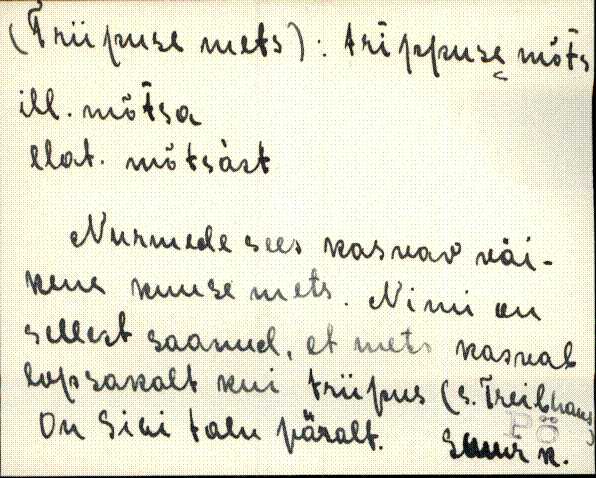 (Triipuse mets): trippuse mõts
ill. mõtsa
elat. mõtsàst
Nurmede sees kasvav väi-
kene kuuse mets. Nimi on
sellest saanud, et mets kasvab
lopsakalt kui triipus (s. Treibhaus)
On Siei talu päralt.
PÖ
Suur k.